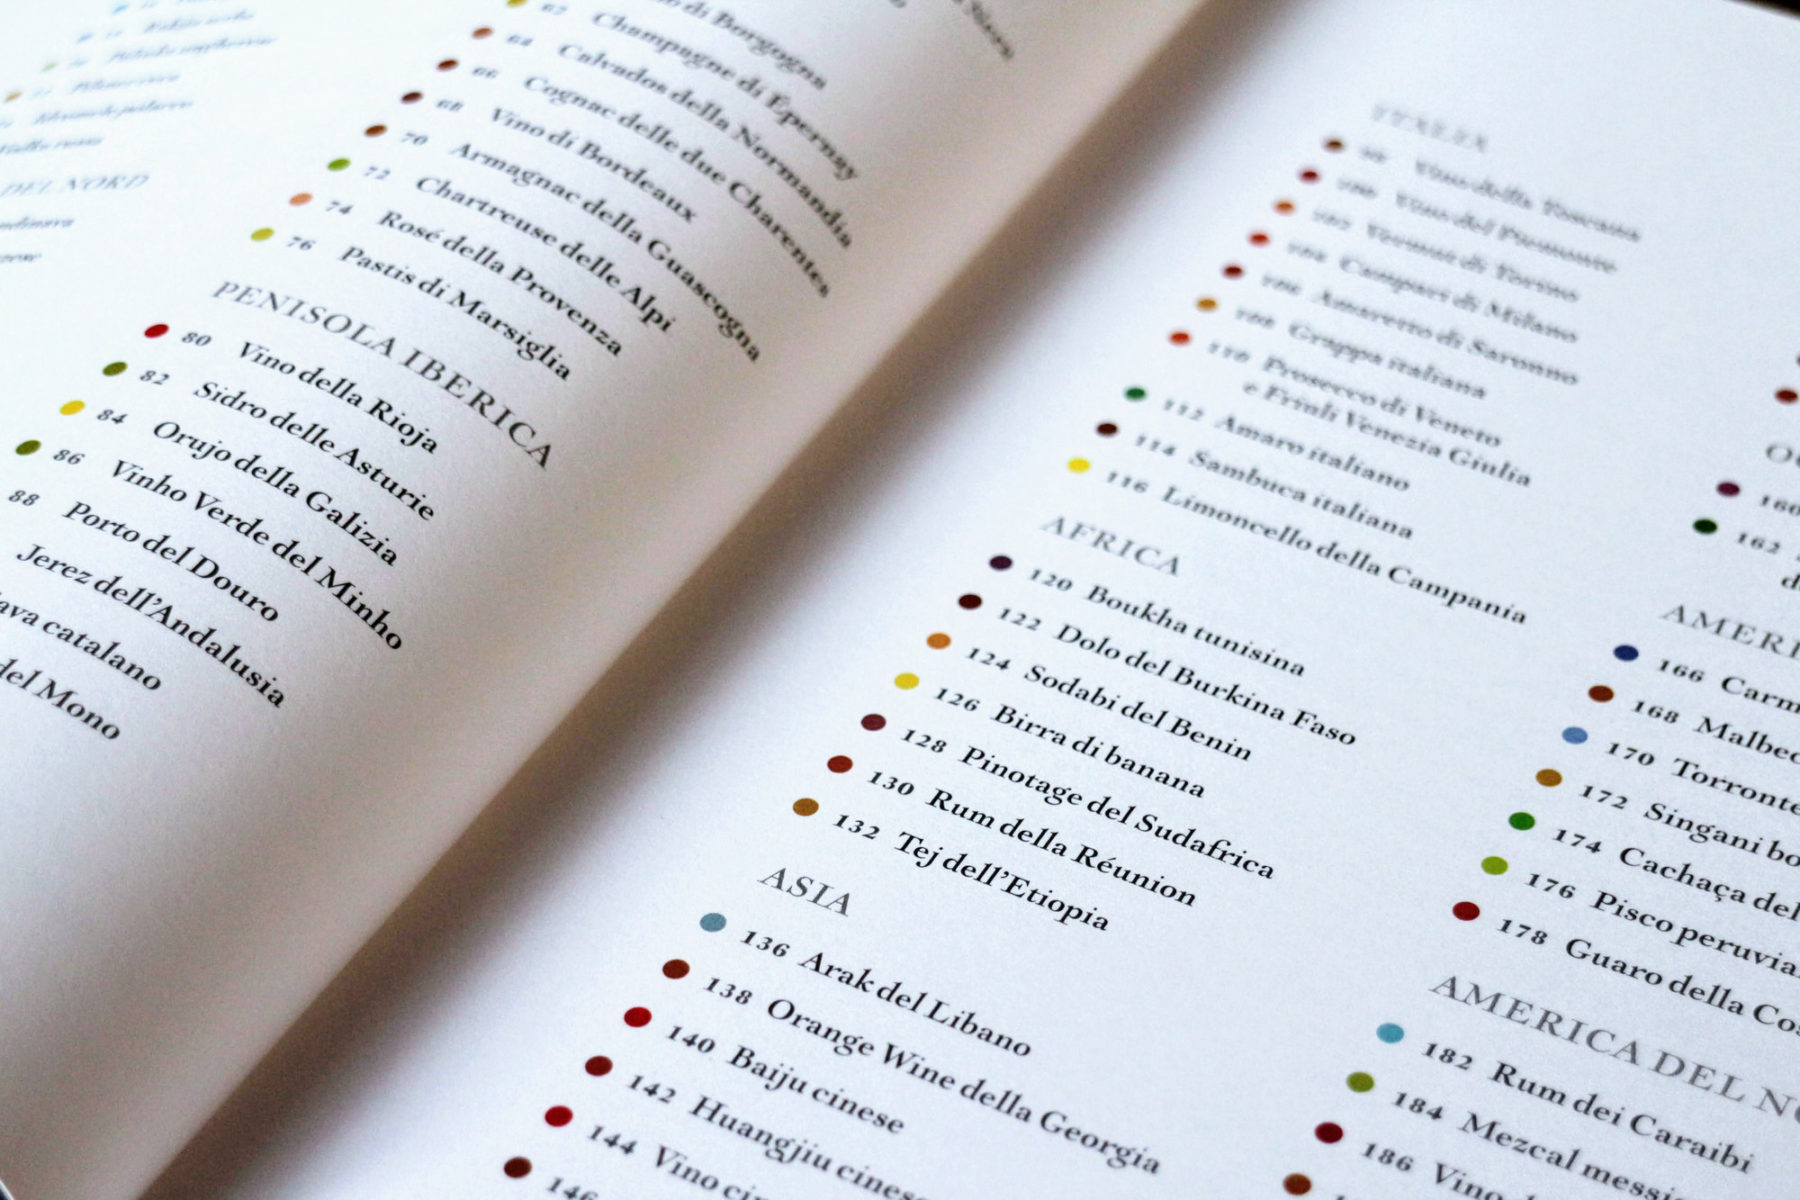 DEL NORD
di Borgogna
62 Champagne di Épernay
64 Calvados della Normandia
66 Cognac delle due Charentes
68 Vino di Bordeaux
70 Armagnac della Guascogna
72 Chartreuse delle Alpi
74 Rosé della Provenza
76 Pastis di Marsiglia
PENISOLA IBERICA
80 Vino della Rioja
82 Sidro delle Asturie
84 Orujo della Galizia
86 Vinho Verde del Minho
88 Porto del Douro
Jerez dell'Andalusia
ava catalano
del Mono
ITALIA
98 Vino della Toscana
100 Vino del Piemonte
102 Vermut di Torino
104 Campari di Milano
106 Amaretto di Saronno
108 Grappa italiana
110 Prosecco di Veneto
e Friuli Venezia Giulia
112 Amaro italiano
114 Sambuca italiana
116 Limoncello della Campania
AFRICA
120 Boukha tunisina
122 Dolo del Burkina Faso
124 Sodabi del Benin
126 Birra di banana
128 Pinotage del Sudafrica
130 Rum della Réunion
132 Tej dell'Etiopia
ASIA
136 Arak del Libano
138 Orange Wine della Georgia
140 Baiju cinese
142 Huangjiu cinese
144 Vino cin
146
O
160
162
d
AMERI
166 Carm
168 Malbec
170 Torronte
172 Singani bo
174 Cachaça del
176 Pisco peruvia
178 Guaro della Cos
AMERICA DEL NO
182 Rum dei Caraibi
184 Mezcal messi
186 Vino